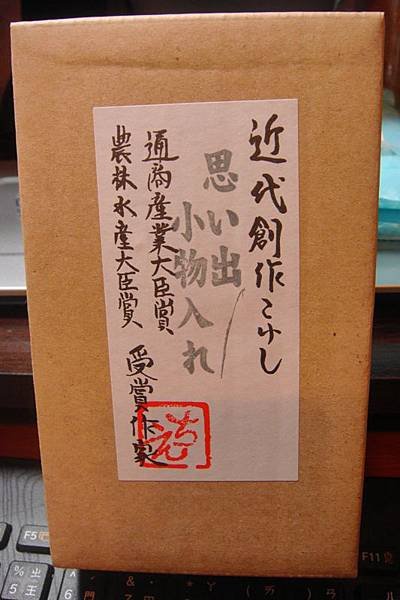 近代創作こけし
思い出
小物入れ
通商産業大臣賞
農林水産大臣賞
受賞作家
F5
F11
%
5
&
6
*